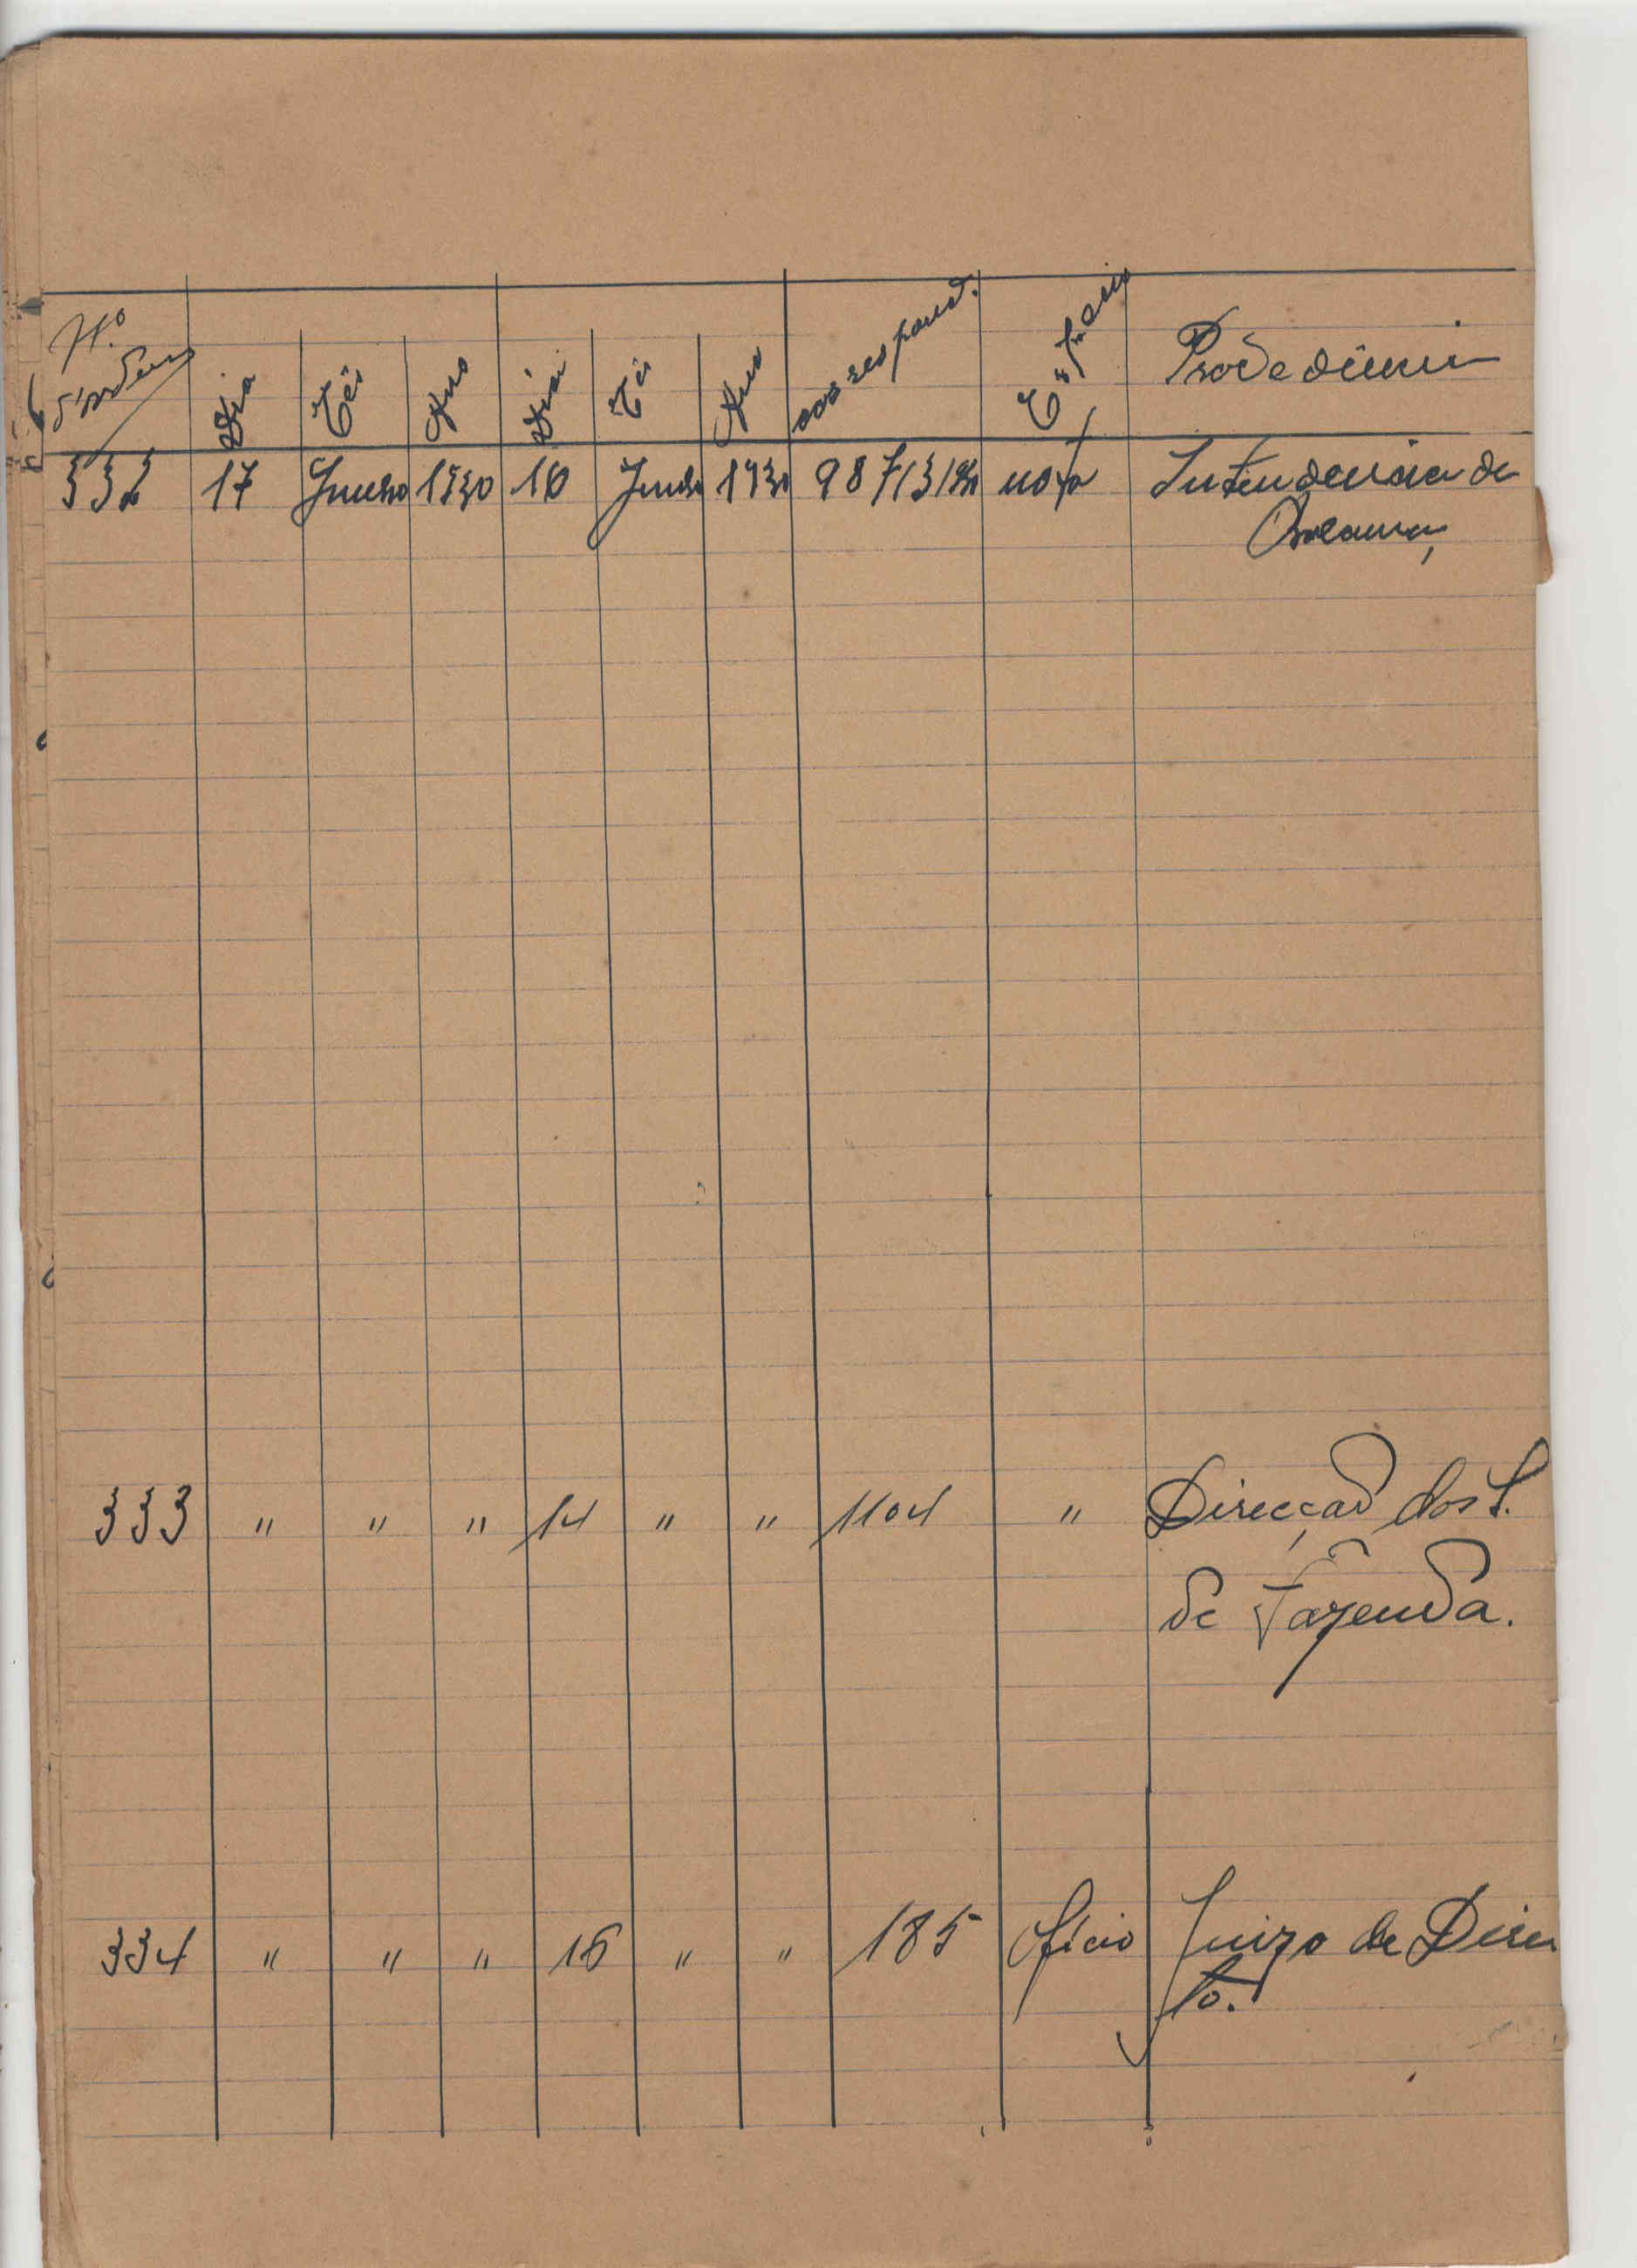 N.º
d'ordem
Dia Mês Ano Dia Mês Ano correspond. Espécie Procedênci
332 17 Junho 1930 16 Junho 1930 987/3/930 nota Intendencia de
Bolama,
333 " " " 14 " " 1104 " Direcção dos S.
de Fazenda.
334 " " " 16 " " 185 Oficio Juizo de Direi
to.